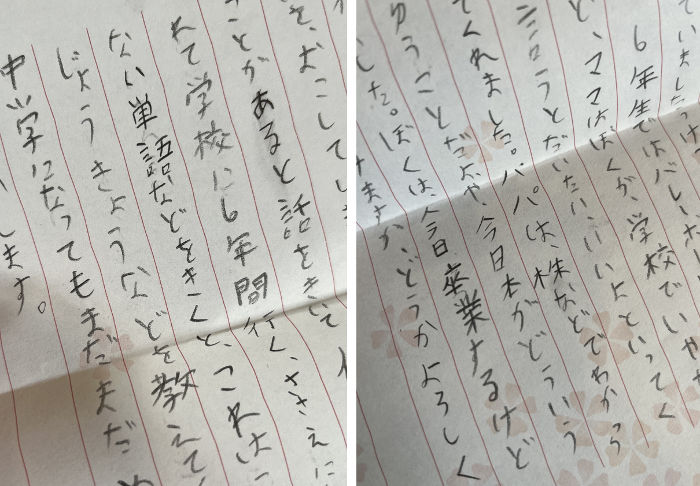 を、おこしてい
ことがあると話をきいて
れて学校に6年間行く、ささえに
ない単語などをきくと、これはっ
じょうきょうなどを教えて、
中学になってもまだまだ
します。
ていました
6年生ではバ
と、ママはぼくが、学校でいや
言うとだいたい、いいよといってく
てくれました。パパは、株などでわから
ゆうことだよや、今日本がどういう
した。ぼくは、今日卒業するけど
ますが、どうかよろしく